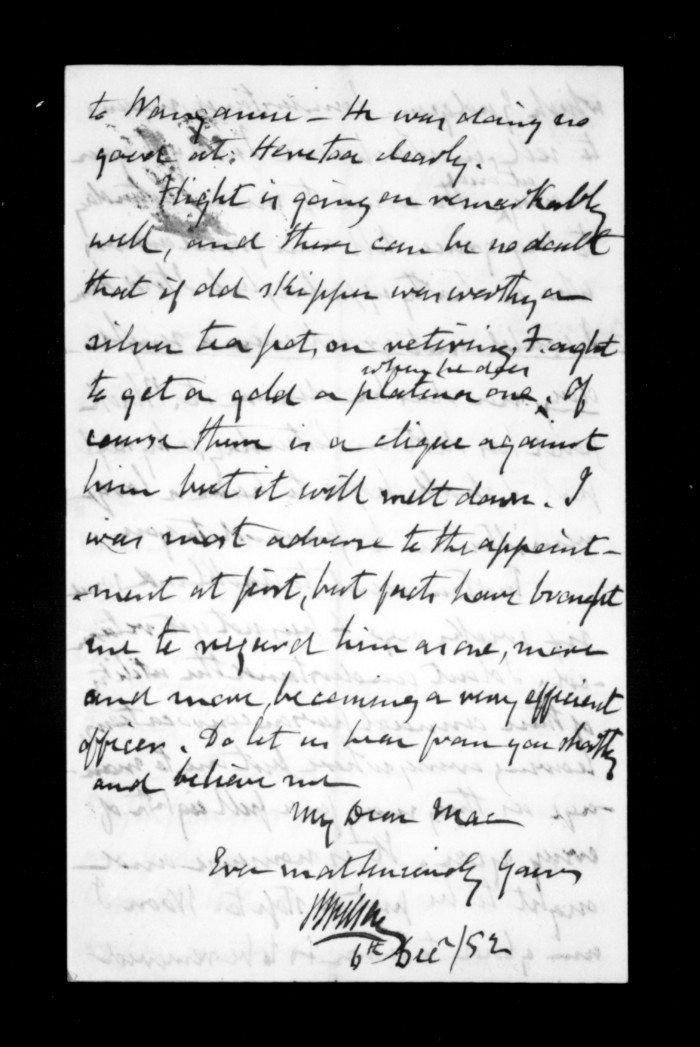 to Wanganui - He was doing no
good at. Heretoa clearly.
Flight is going on remarkably
well, and there can be no doubt
that if old skipper was worthy a
silver tea pot, on retiring, F. ought
when he does
to get a gold or platina one. Of
course there is a clique against
him but it will melt down. I
was most adverse to the appoint-
-ment at first, but facts have brought
me to regard him as one, more
and more, becoming a very efficient
officer. Do let us hear from you shortly
and believe me
My Dear Mac
Ever most sincerely Yours
6th Decr/52